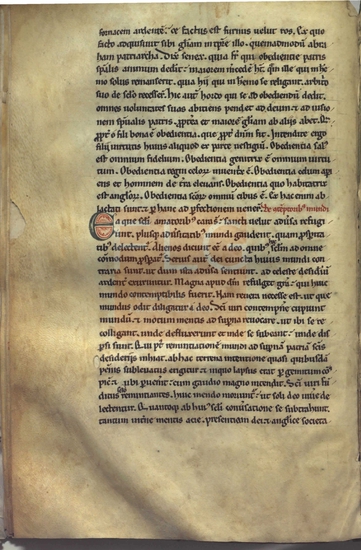 fornacem ardente. et factus est furnus velut ros. Ex quo
facto adquisiuit sibi gliam in tpre illo. quemadmodu abra
ham patriarcha. Dix senex. quia si qui obediente patris
spalis animum dedit: maiorem
mo solus remanserit. qui hui in heimo se religant. arbitrio
suo de solo recessit. Hic aut homo qui se ad obediendu dedit.
omnes voluntates suas abitiens pendet ad deum et ad iusio
nem spualis patris. propterea et maiore gliam ab aliis abet.
propt o fili bona e obedientia. que propt dnm fit. Intendite ergo
filii virtutis huius aliquod ex parte vestigiu. Obedientia salus
est omnium fidelium. Obedientia genitrix e omnium virtu
tum. Obedientia regni celoru inuentrix e. Obedientia celum aperi
ens et hominem de tra eleuans. Obedientia que habitatrix
est angloru. Obedientia scoru omniu cibus e. Ex hac enim ab
lactati sunt et p hanc ad pfectionem uener. De contemptibus mundi
Ea que seli amatoribus cara st. sancti uelut aduersa refugi
unt. plusq aduersitatibus mundi gaudent. quam prosperita
tib delectent. Alienos dicunt ee a deo. quib hoc selm ad omne
comodum prosperat. Seruis aute dei cuncta huius mundi con
traria sunt. ut dum ista aduersa sentiunt. ad celeste desideriu
ardent excitentur. Magna apud dm refulget gra. qui huic
mundo contemptibilis fuerit. Nam reuera necesse est. ut que
mundus odit diligatur a deo. Sci uiri contempnere cupiunt
mundu. et motum mentis ad superna reuocare. ut ibi se re
colligant. unde defluxerunt. et inde se subtrant. unde dis
psi sunt. Qui p renuntiatione mundi ad supnam patriam scis
desideriis inhiat. ab hac terrena intentione quasi quibusdam
pennis subleuatus erigitur. et in quo lapsus erat p gemitum cos
picit. ubi puenit. cum gaudio magno intendit. Sci uiri fun
ditus renuntiantes. huic mundo moriunt. ut soli deo uiuere de
lectentur. Quantoq ab huius seli conuersatione se subtrahunt.
tantum interne mentis acie. presentiam dei. et anglice societa